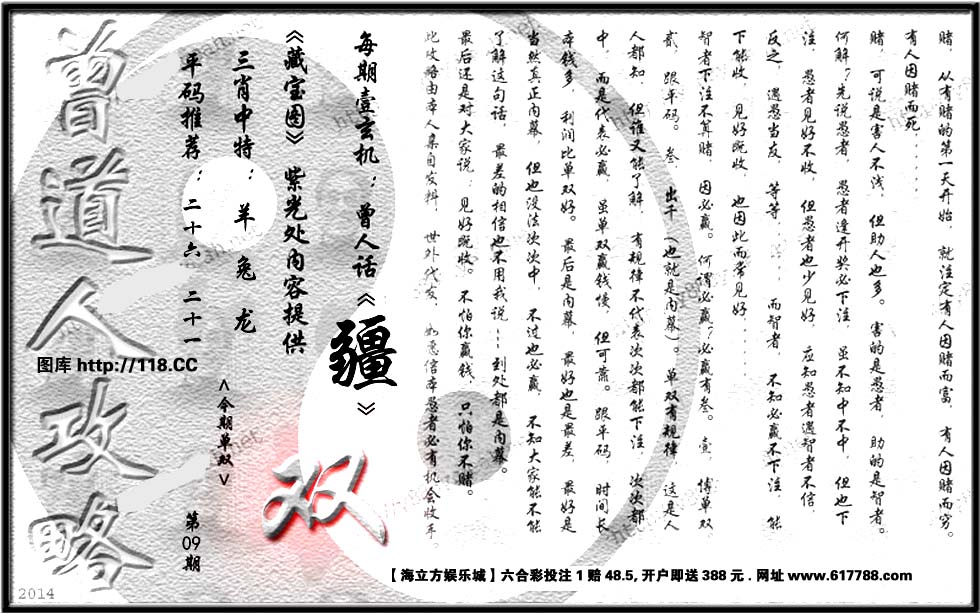 赌，从有赌的第一天开始，就注定有人因赌而富，有人因赌而穷。
有人因赌而死......
赌，可说是害人不浅，但助人也多。害的是愚者，助的是智者。
何解？先说愚者，愚者逢开奖必下注，虽不知中不中，但也下
注，愚者见好不收，但愚者也少见好，应知愚者遇智者不信，
反之，遇愚当友，等等......而智者，不知必赢不下注，能
下能收，见好既收，也因此而常见好......
智者下注不算赌，因必赢。何谓必赢？必赢有叁。壹，博单双，
贰，跟平码。叁，出千（也就是内幕）。单双有规律，这是人
人都知，但谁又能了解，有规律不代表次次都能下注，次次都
中，而是代表必赢，虽单双赢钱慢，但可靠。跟平码，时间长
本钱多，利润比单双好。最后是内幕，最好也是最差，最好是
当然真正内幕，但也没法次次中，不过也必赢，不知大家能不能
了解这句话，最差的相信也不用我说……到处都是内幕。
最后还是对大家说：见好既收。不怕你赢钱，只怕你不赌。
此攻略由本人集自发料，世外代友，如愿信本愚者必有机会收车。
每期壹玄机：曾人话《疆》
《藏宝图》紫光处内容提供
三肖中特：羊兔龙
平码推荐：二十六 二十一
<今期单双>
双
第09期
曾道人攻略
图库 http://118.CC
【海立方娱乐城】六合彩投注1赔48.5,开户即送388元.网址www.617788.com,
2014